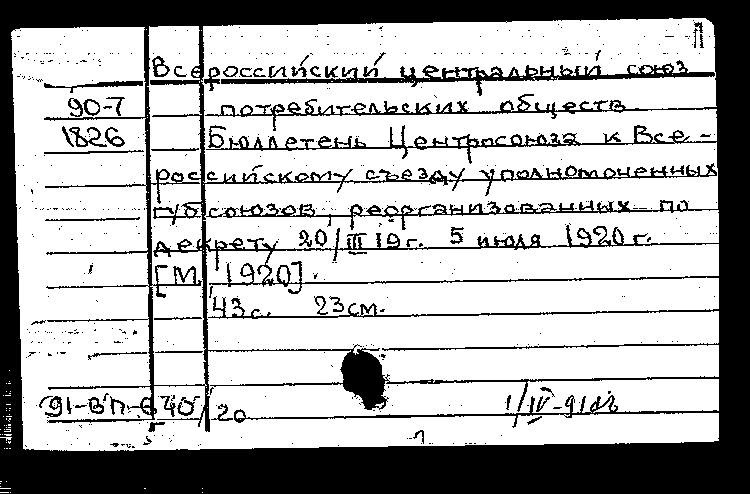 П
Всероссийский центральный союз
90-7 потребительских обществ.
1826 Бюллетень Центросоюза к Все-
российскому съезду уполномоченных
губсоюзов, реорганизованных по
декрету 20/III 19г. 5 июля 1920г.
[М, 1920].
43с. 23см.
91-ВП-640/20 1/IV-91